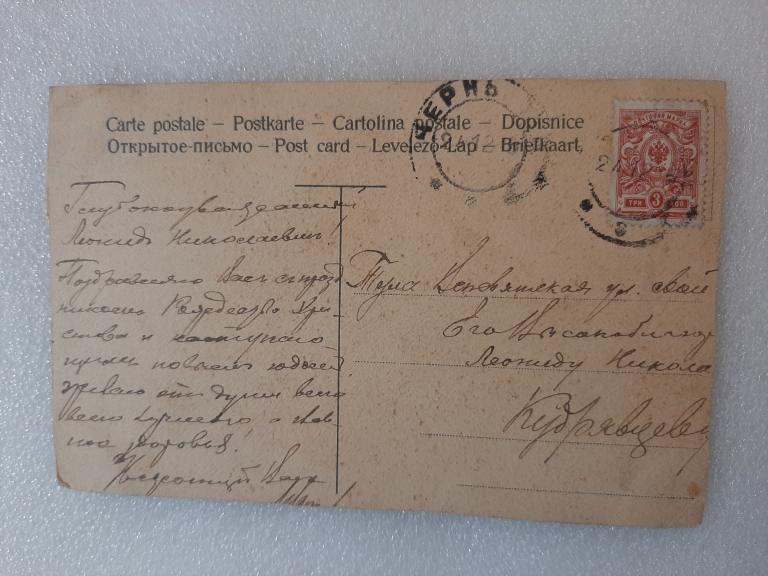 Carte postale – Postkarte – Cartolina postale – Dopisnice
Открытое-письмо – Post card – Levelező-Lap – Briefkaart
ЧЕРНЬ
ТРИ 3 КОП
Глубокоуважаемый
Леонидъ Николаевичъ!
Поздравляю Васъ съ празд
никомъ Рождества Хри-
стова и наступаю-
щимъ новымъ годомъ
желаю отъ души
всего лучшаго, а глав-
ное здоровья!
Тула ул. свой
Его Высокоблагор
Леониду Никола
Кудрявцеву